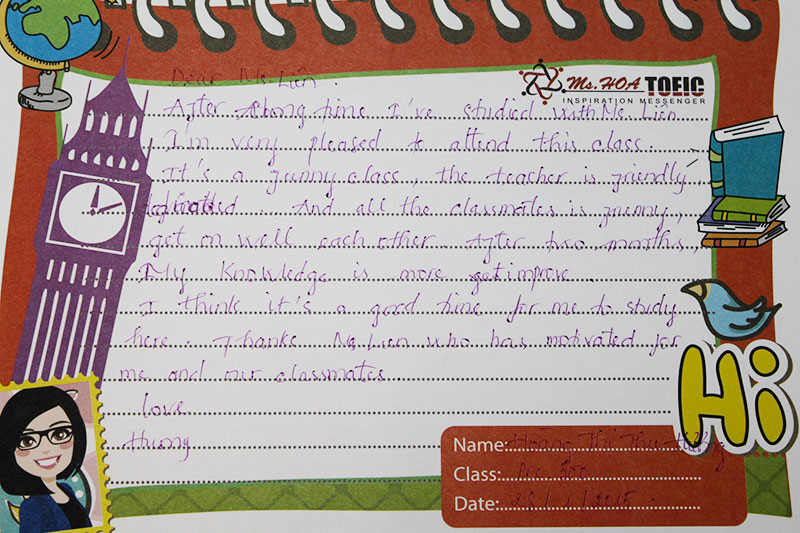 Dear Ms. Liên.
Ms.HOA TOEIC
INSPIRATION MESSENGER
After a long time I've studied with Ms. Liên
I'm very pleased to attend this class.
It's a funny class, the teacher is friendly,
And all the classmates is funny,
get on well each other After two months,
My knowledge is more improve
I think it's a good time for me to study
here. Thanks Ms. Lien who has motivated for
me and our classmates.
love
Huong
Hi
Name: Hoàng Thị Thu Hường
Class:
Date: